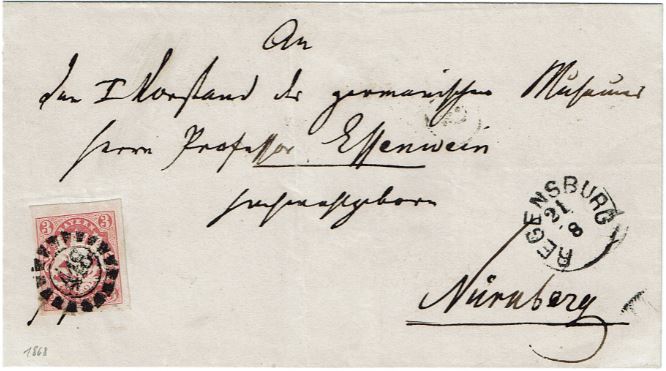 An
den I Vorstand des germanischen Museums
Herrn Professor Essenwein
Hochwohlgeborn
REGENSBURG
21
8
Nürnberg
3 BAYERN 3
1868